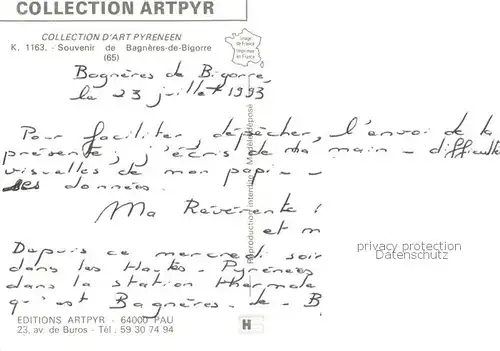 COLLECTION ARTPYR
COLLECTION D'ART PYRENEEN
K. 1163. - Souvenir de Bagnères-de-Bigorre
(65)
Image
de France
Imprimé
en France
Bagnères de Bigorre,
le 23 juillet 1993
Pour faciliter, dépêcher, l'envoi de la
présente; j'écris de ma main - difficulté
visuelles de mon papi -
données.
Ma Révérente !
et m
Depuis ce mercredi soir
dans les Hautes-Pyrénées
dans la station thermale
qu'est Bagnères-de-B
Reproduction interdite - Modèle déposé
privacy protection
Datenschutz
EDITIONS ARTPYR - 64000 PAU
23, av. de Buros - Tél : 59 30 74 94
H